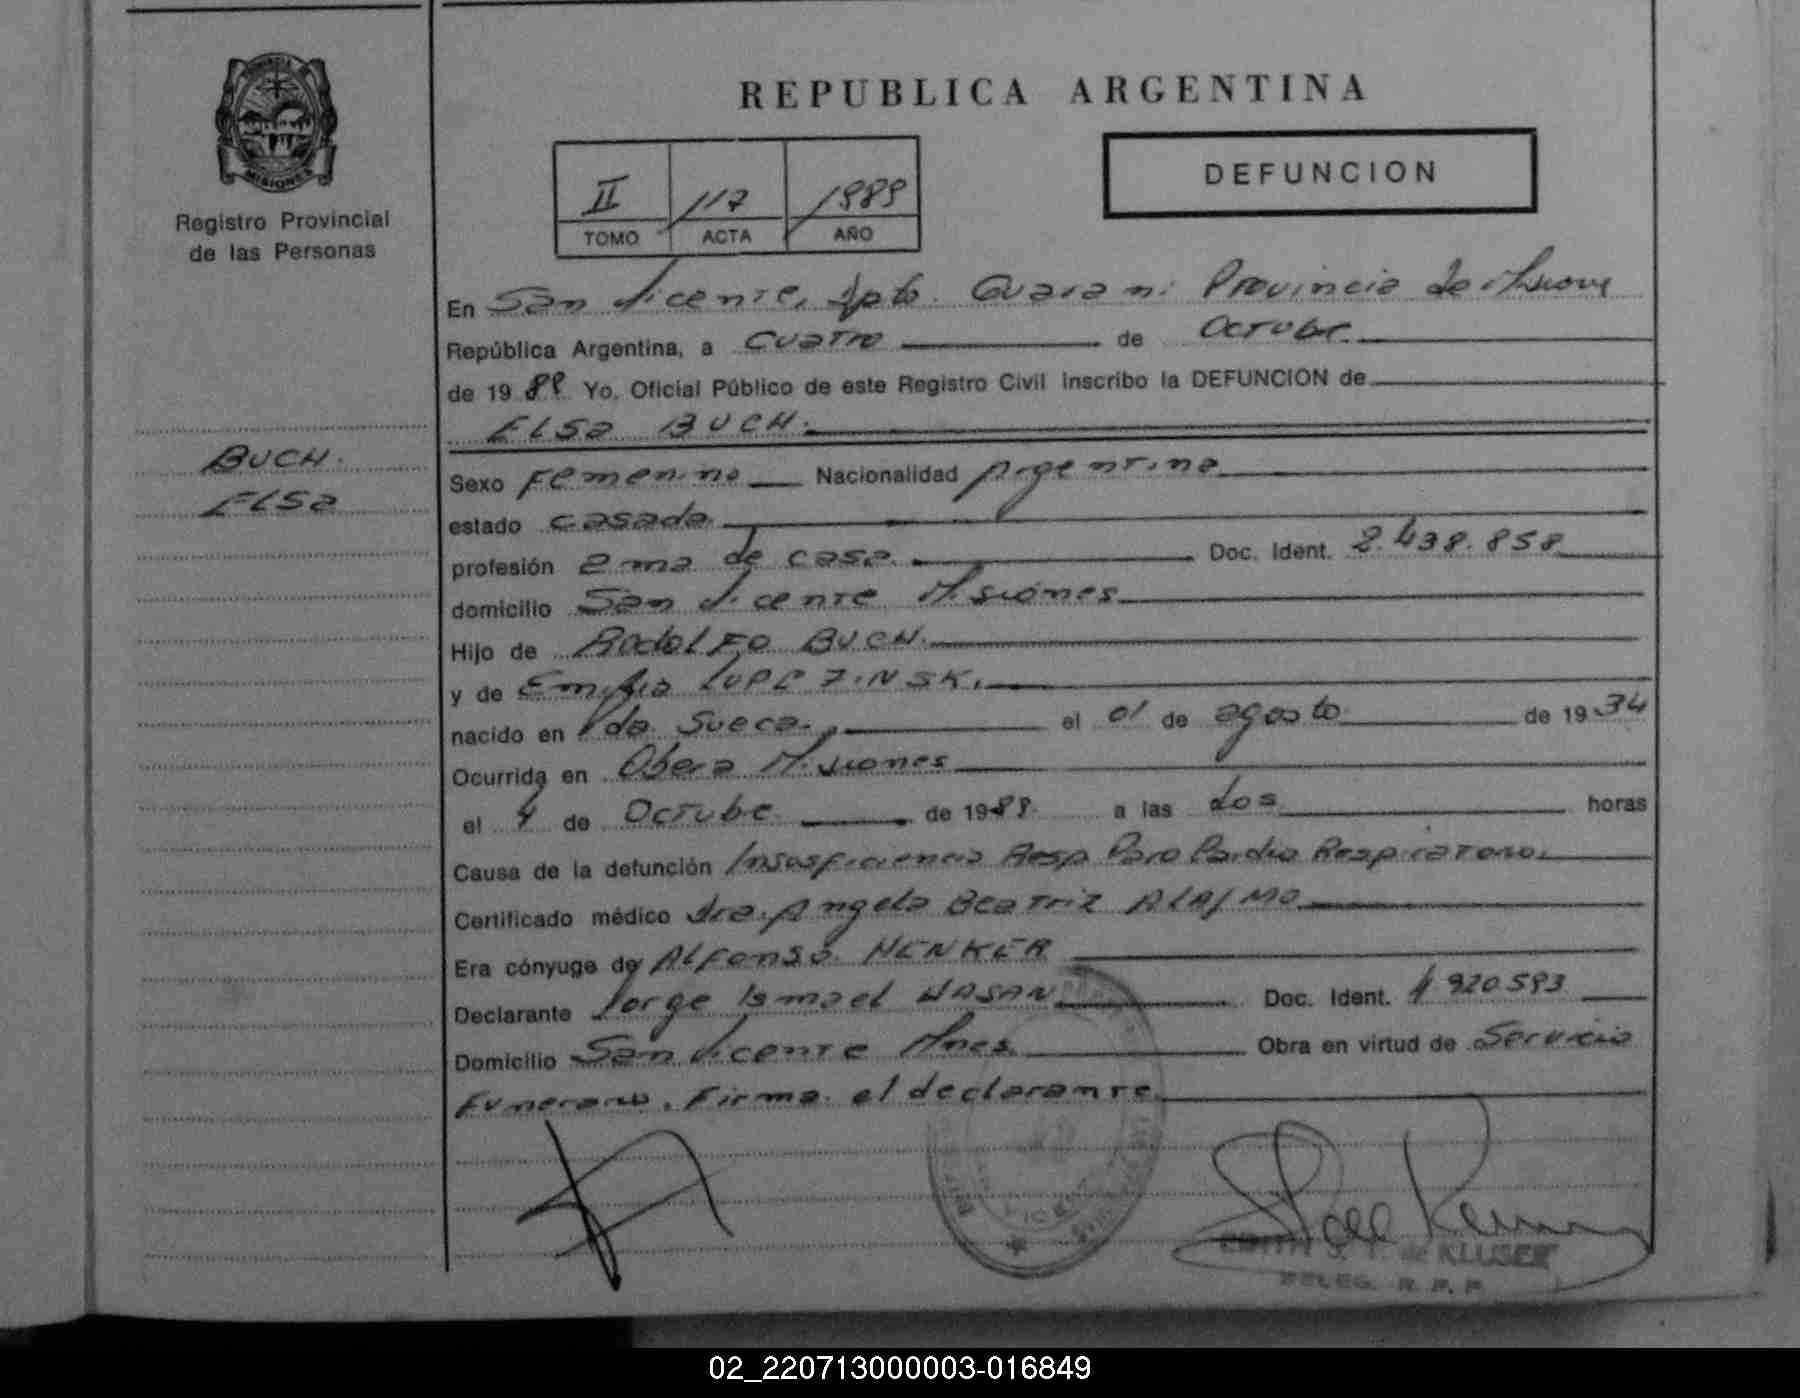 REPUBLICA ARGENTINA
PROVINCIA
MISIONES
Registro Provincial
de las Personas
II 117 1989
TOMO ACTA AÑO
DEFUNCION
En San Vicente, Dpto. Guarani Provincia de Misiones
República Argentina, a cuatro de Octubre
de 1989 Yo, Oficial Público de este Registro Civil inscribo la DEFUNCION de
ELSa BUCH.
BUCH.
ELSa
Sexo Femenino Nacionalidad Argentina
estado casada
profesión ama de casa. Doc. Ident. 2.438.858
domicilio San Vicente Misiones
Hijo de RodoLFo BUCH.
y de Emilia
nacido en Vda Sueca. el 01 de agosto de 1934
Ocurrida en Obera Misiones
el 4 de Octubre de 1989 a las dos horas
Causa de la defunción Insuficiencia Resp. Paro Cardio Respiratorio.
Certificado médico Dra. Angela Beatriz ALAJMO
Era cónyuge de Alfonso HENKER
Declarante Jorge Ismael HASAN Doc. Ident. 4920593
Domicilio San Vicente Mnes Obra en virtud de Servicio
Funerario. Firma el declarante
EDITH S. T. de KLUSER
DELEG. R. P. P.
02_220713000003-016849